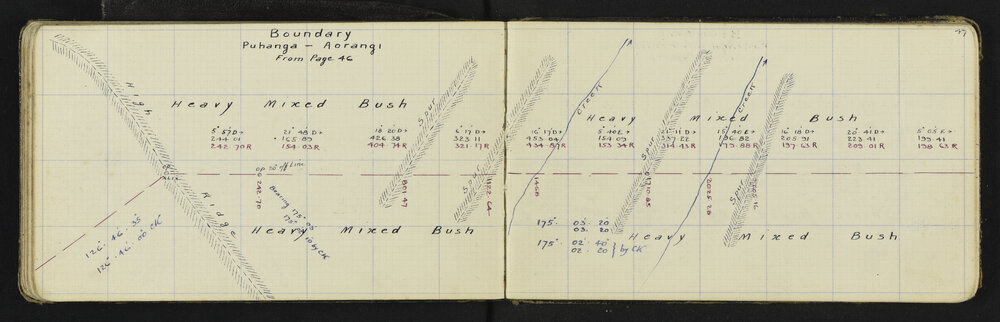 Boundary
Puhanga - Aorangi
From Page 46
47
High
Ridge
Heavy Mixed Bush
5° 57' D+
244.01
242.70 R
21° 48' D+
165.89
154.03 R
18° 20' D+
426.38
404.74 R
6° 17' D+
323.11
321.17 R
16° 17' D+
453.04
434.87 R
Op 20' off Line
242.70
Bearing 175°
801.47
Spur
Spur
1122.64
126° 46' 35"
126° 46' 00" CK
Heavy Mixed Bush
Creek
Heavy Mixed Bush
5° 40' E+
154.09
153.34 R
21° 11' D+
337.22
314.43 R
15° 40' E+
186.82
179.88 R
16° 18' D+
205.91
197.63 R
20° 41' D+
223.41
209.01 R
5° 05' E+
199.41
198.63 R
Spur
Creek
Spur
2025.28
175° 03' 20"
03. 20
175° 02' 40"
02. 20 } by CK
Heavy Mixed Bush